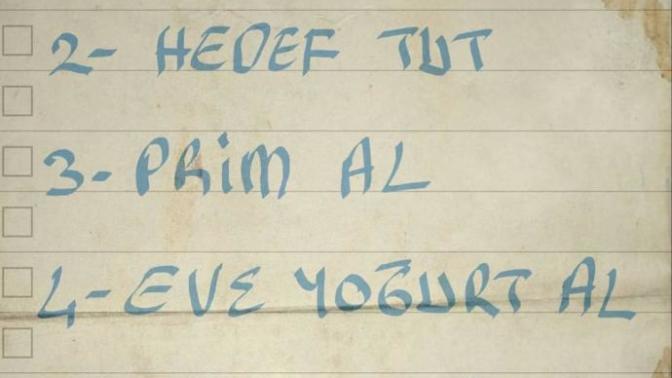 2- HEDEF TUT
3- PRiM AL
4- EVE YOĞURT AL